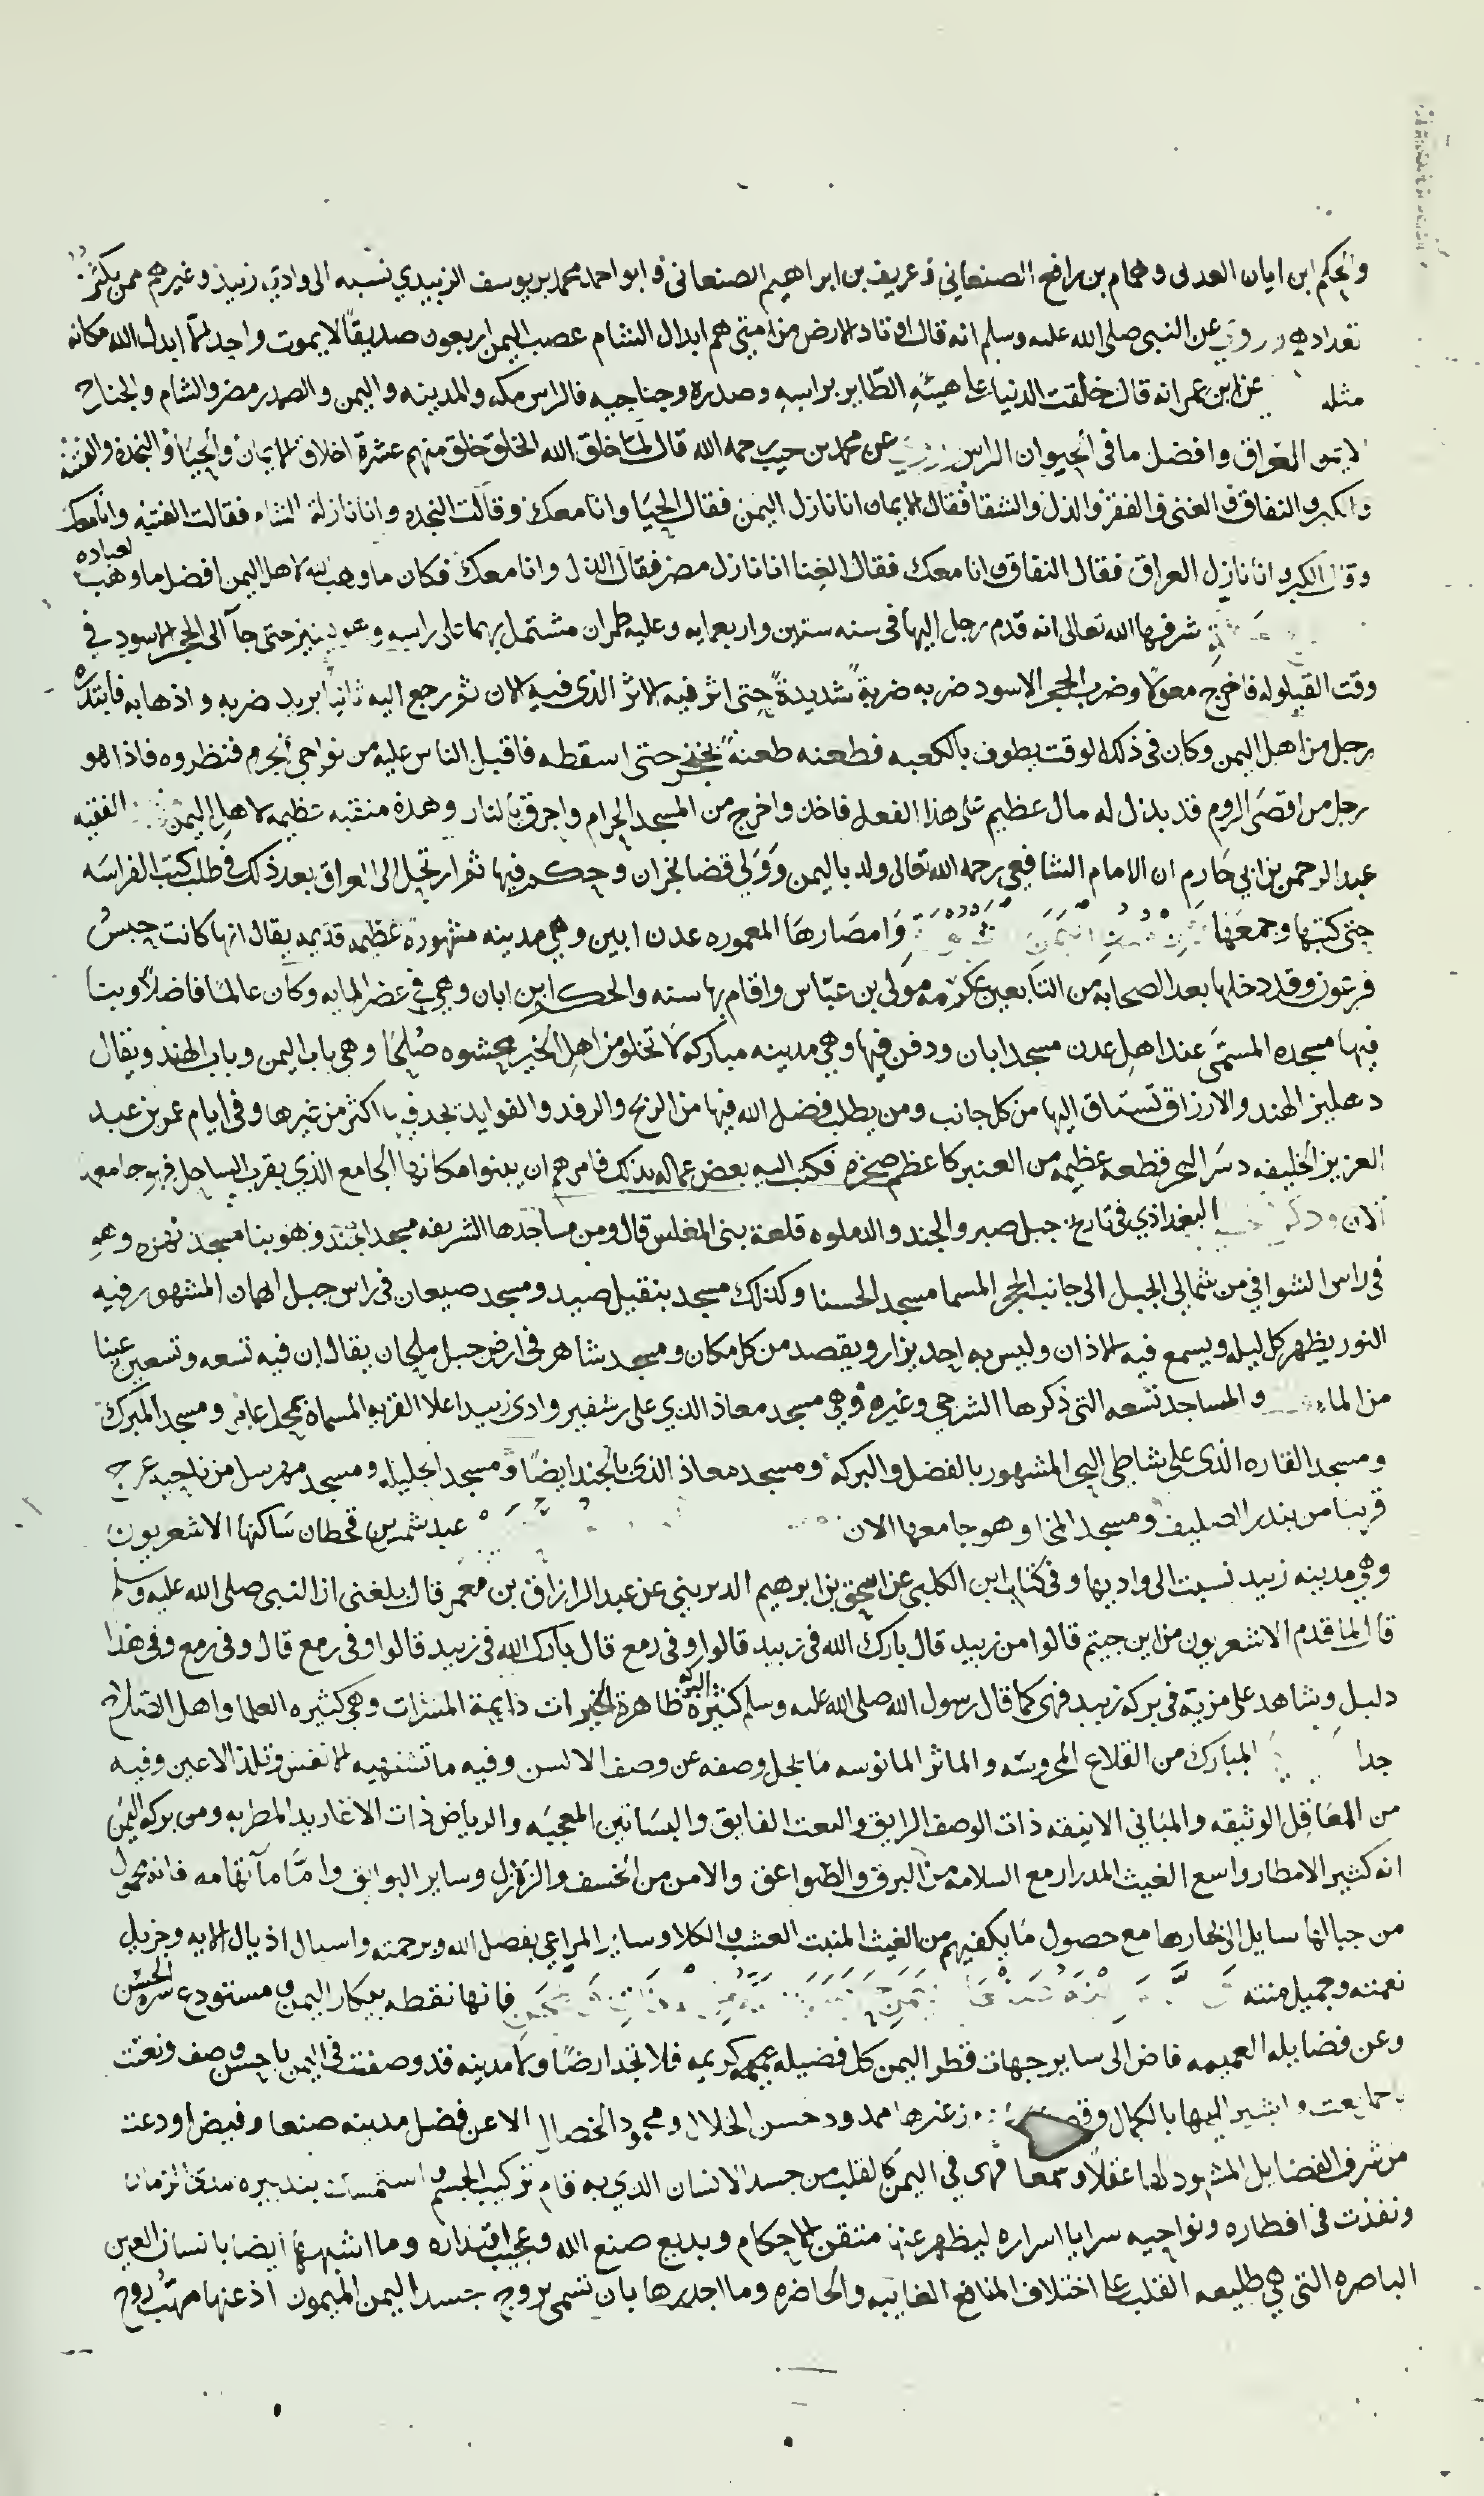 والحكم ابن ايان العدني وهمام بن رافع الصنعاني وعريف بن ابراهيم الصنعاني وابو احمد محمد ابن يوسف الزبيدي نسبه الى وادي زبيد وغيرهم ممن يكثر
تعدادهم وروي عن النبي صلى الله عليه وسلم انه قال اوتاد الارض من امتي هم ابدال الشام عصب اليمن اربعون صديقا لا يموت واحد الا ابدل الله مكانه
مثله عن ابن عمر انه قال خلقت الدنيا على هيئة الطاير براسه وصدره وجناحيه فالراس مكه والمدينه واليمن والصدر مصر والشام والجناح
الايمن العراق وافضل ما في الحيوان الراس عن محمد بن حبيب رحمه الله قال لما خلق الله الخلق خلق منهم عشرة اخلاق الايمان والحيا والنجدة والفتنة
والكبر والنفاق والغنى والفقر والذل والشقا فقال الايمان انا نازل اليمن فقال الحيا وانا معك وقالت النجده وانا نازلة الشام فقالت الفتنه وانا معك
وقال الكبر انا نازل العراق فقال النفاق وانا معك فقال الغنا انا نازل مصر فقال الذل وانا معك فكان ما وهب الله لاهل اليمن افضل ما وهب لعباده
شرفها الله تعالى انه قدم رجل اليها في سنه ستين واربعمايه وعليه طمران مشتمل بهما على راسه حتى جآ الى الحجر الاسود في
وقت القيلوله فاخرج معولا وضرب الحجر الاسود ضربه ضربة شديدة حتى اثر فيه الاثر الذي فيه الان ثم رجع اليه ثانيا يريد ضربه واذهابه فابتدره
رجل من اهل اليمن وكان في ذلك الوقت يطوف بالكعبه فطعنه طعنة بخنجر حتى اسقطه فاقبل الناس عليه من نواحي الحرم فنظروه فاذا هو
رجل من اقصى الروم قد بذل له مال عظيم على هذا الفعل فاخذ واخرج من المسجد الحرام واحرق بالنار وهذه منقبه عظيمه لاهل اليمن الفقيه
عبد الرحمن بن ابي حازم ان الامام الشافعي رحمه الله تعالى ولد باليمن وولي قضا نجران وحكم فيها ثم ارتحل الى العراق بعد ذلك في طلب كتب الفراسه
حتى كتبها وجمعها وامصارها المعموره عدن ابين وهي مدينه مشهورة عظيمه قديمه يقال انها كانت حبس
فرعون وقد دخلها بعد الصحابه من التابعين عكرمه مولى بن عباس واقام بها سنه والحكم ابن ابان وهي في عصر المايه وكان عالما فاضلا وبنا
فيها مسجده المسمى عند اهل عدن مسجد ابان ودفن فيها وهي مدينه مباركه لا تخلو من اهل الخير محشوه صلحا وهي باب اليمن وباب الهند ويقال
دهليز الهند والارزاق تساق اليها من كل جانب ومن يطلب فضل الله فيها من الربح والرفد والفوايد يجد فيها اكثر من غيرها وفي ايام عمر بن عبد
العزيز الخليفه دسر البحر قطعه عظيمه من العنبر كاعظم صخره فكتب اليه بعض عماله بذلك فامرهم ان يبنوا مكانها الجامع الذي بقرب الساحل فهو جامعها
الان وذكر البغدادي في تاريخ جبل صبر والجند والدملوه قلعة بني المغلس قال ومن مساجدها الشريفه مسجد الجند وهو بنا مسجد وهو
في راس الشوافي من شمالي الجبل الى جانب الحجر المسما مسجد الحسنا وكذلك مسجد بنقيل صيد ومسجد صيعان في راس جبل الهان المشهور فيه
النور يظهر كل ليله ويسمع فيه الاذان وليس به احد يزار ويقصد من كل مكان ومسجد شاهر في ارض جبل ملحان يقال ان فيه تسعه وتسعين عينا
من الماء والمساجد تسعه التي ذكرها الشرجي وغيره وهي مسجد معاذ الذي على شفير وادي زبيد اعلا القريه المسماه بمحل ومسجد المبرك
ومسجد الفازه الذي على شاطي البحر المشهور بالفضل والبركه ومسجد معاذ الذي بالجند ايضا ومسجد الجليله ومسجد مرسل من ناحيه
قريبا من بندر الصليف ومسجد المخا وهو جامعها الان عبد شمس بن قحطان ساكنها الاشعريون
وهي مدينه زبيد نسبت الى واديها وفي كتاب ابن الكلبي عن اسحق بن ابراهيم الدبريني عن عبد الرازاق بن معمر قال بلغني ان النبي صلى الله عليه وسلم
قال لما قدم الاشعريون من اين جيتم قالوا من زبيد قال بارك الله في زبيد قالوا وفي رمع قال بارك الله في زبيد قالوا وفي رمع قال وفي رمع وفي هذا
دليل وشاهد على مزية في بركه زبيد فهي كما قال رسول الله صلى الله عليه وسلم كثيرة البركه ظاهرة الخيرات دايمة المسرات وهي كثيره العلما واهل الصلاح
جدا المبارك من القلاع المحروسه والماثر المانوسه ما يجل وصفه عن وصف الالسن وفيه ما تشتهيه الانفس وتلذ الاعين وفيه
من المعاقل الوثيقه والمباني الانيقه ذات الوصف الرايق والنعت الفايق والبساتين المعجبه والرياض ذات الاغاريد المطربه ومن بركه اليمن
انه كثير الامطار واسع الغيث المدرار مع السلامه من البرق والصواعق والامن من الخسف والزلازل وساير البوايق واما ما تهامه فانه
من جبالها سايل الى بحارها مع حصول ما يكفيهم من الغيث المنبت العشب والكلا وساير المراعي بفضل الله وبرحمته واسبال اذيال الايه وجزيل
نعمته وجميل منته فانها نقطه بيكار اليمن ومستودع سره الحسن
وعن فضايله العميمه فاض الى ساير جهات قطر اليمن كل فضيله عميمه كريمه فلا تجد ارضا ولا مدينه قد وصفت في اليمن باحسن وصف ونعت
واشير اليها بالكمال عن غيرها ممدود حسن الخلال ومحمود الخصال الا عن فضل مدينه صنعا وفيض اودعت
من شرف الفضايل المشهود لها عقلا وسمعا فهي في اليمن كالقلب من جسد الانسان الذي به قام تركيب الجسم واستمسك بتدبيره
ونفذت في اقطاره ونواحيه سرايا اسراره ليظهر عنه متقن الاحكام وبديع صنع الله وعجيب اقتداره وما اشبهها ايضا بانسان العين
الباصره التي هي طليعه القلب على اختلاف المنافع الغايبه والحاضره وما اجدرها بان تسمى بروح جسد اليمن الميمون اذ عنها مهب روح